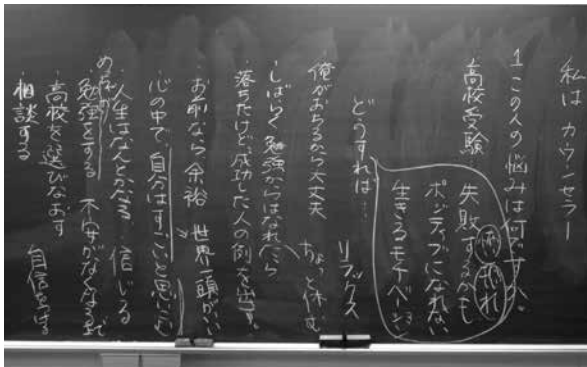 私は カウンセラー
1 この人の悩みは何ですか。
高校受験
失敗するかも 恐れ
ポジティブになれない
生きるモチベーション
どうすれば…
リラックス
俺がおちるから大丈夫
ちょっと休む
しばらく勉強からはなれたら
落ちたけど成功した人の例を出す。
お前なら余裕 世界一頭がいい
心の中で、自分はすごいと思いこむ
人生はなんとかなる 信じる
勉強をする 不安がなくなるまで
高校を選びなおす
自信をつける
相談する